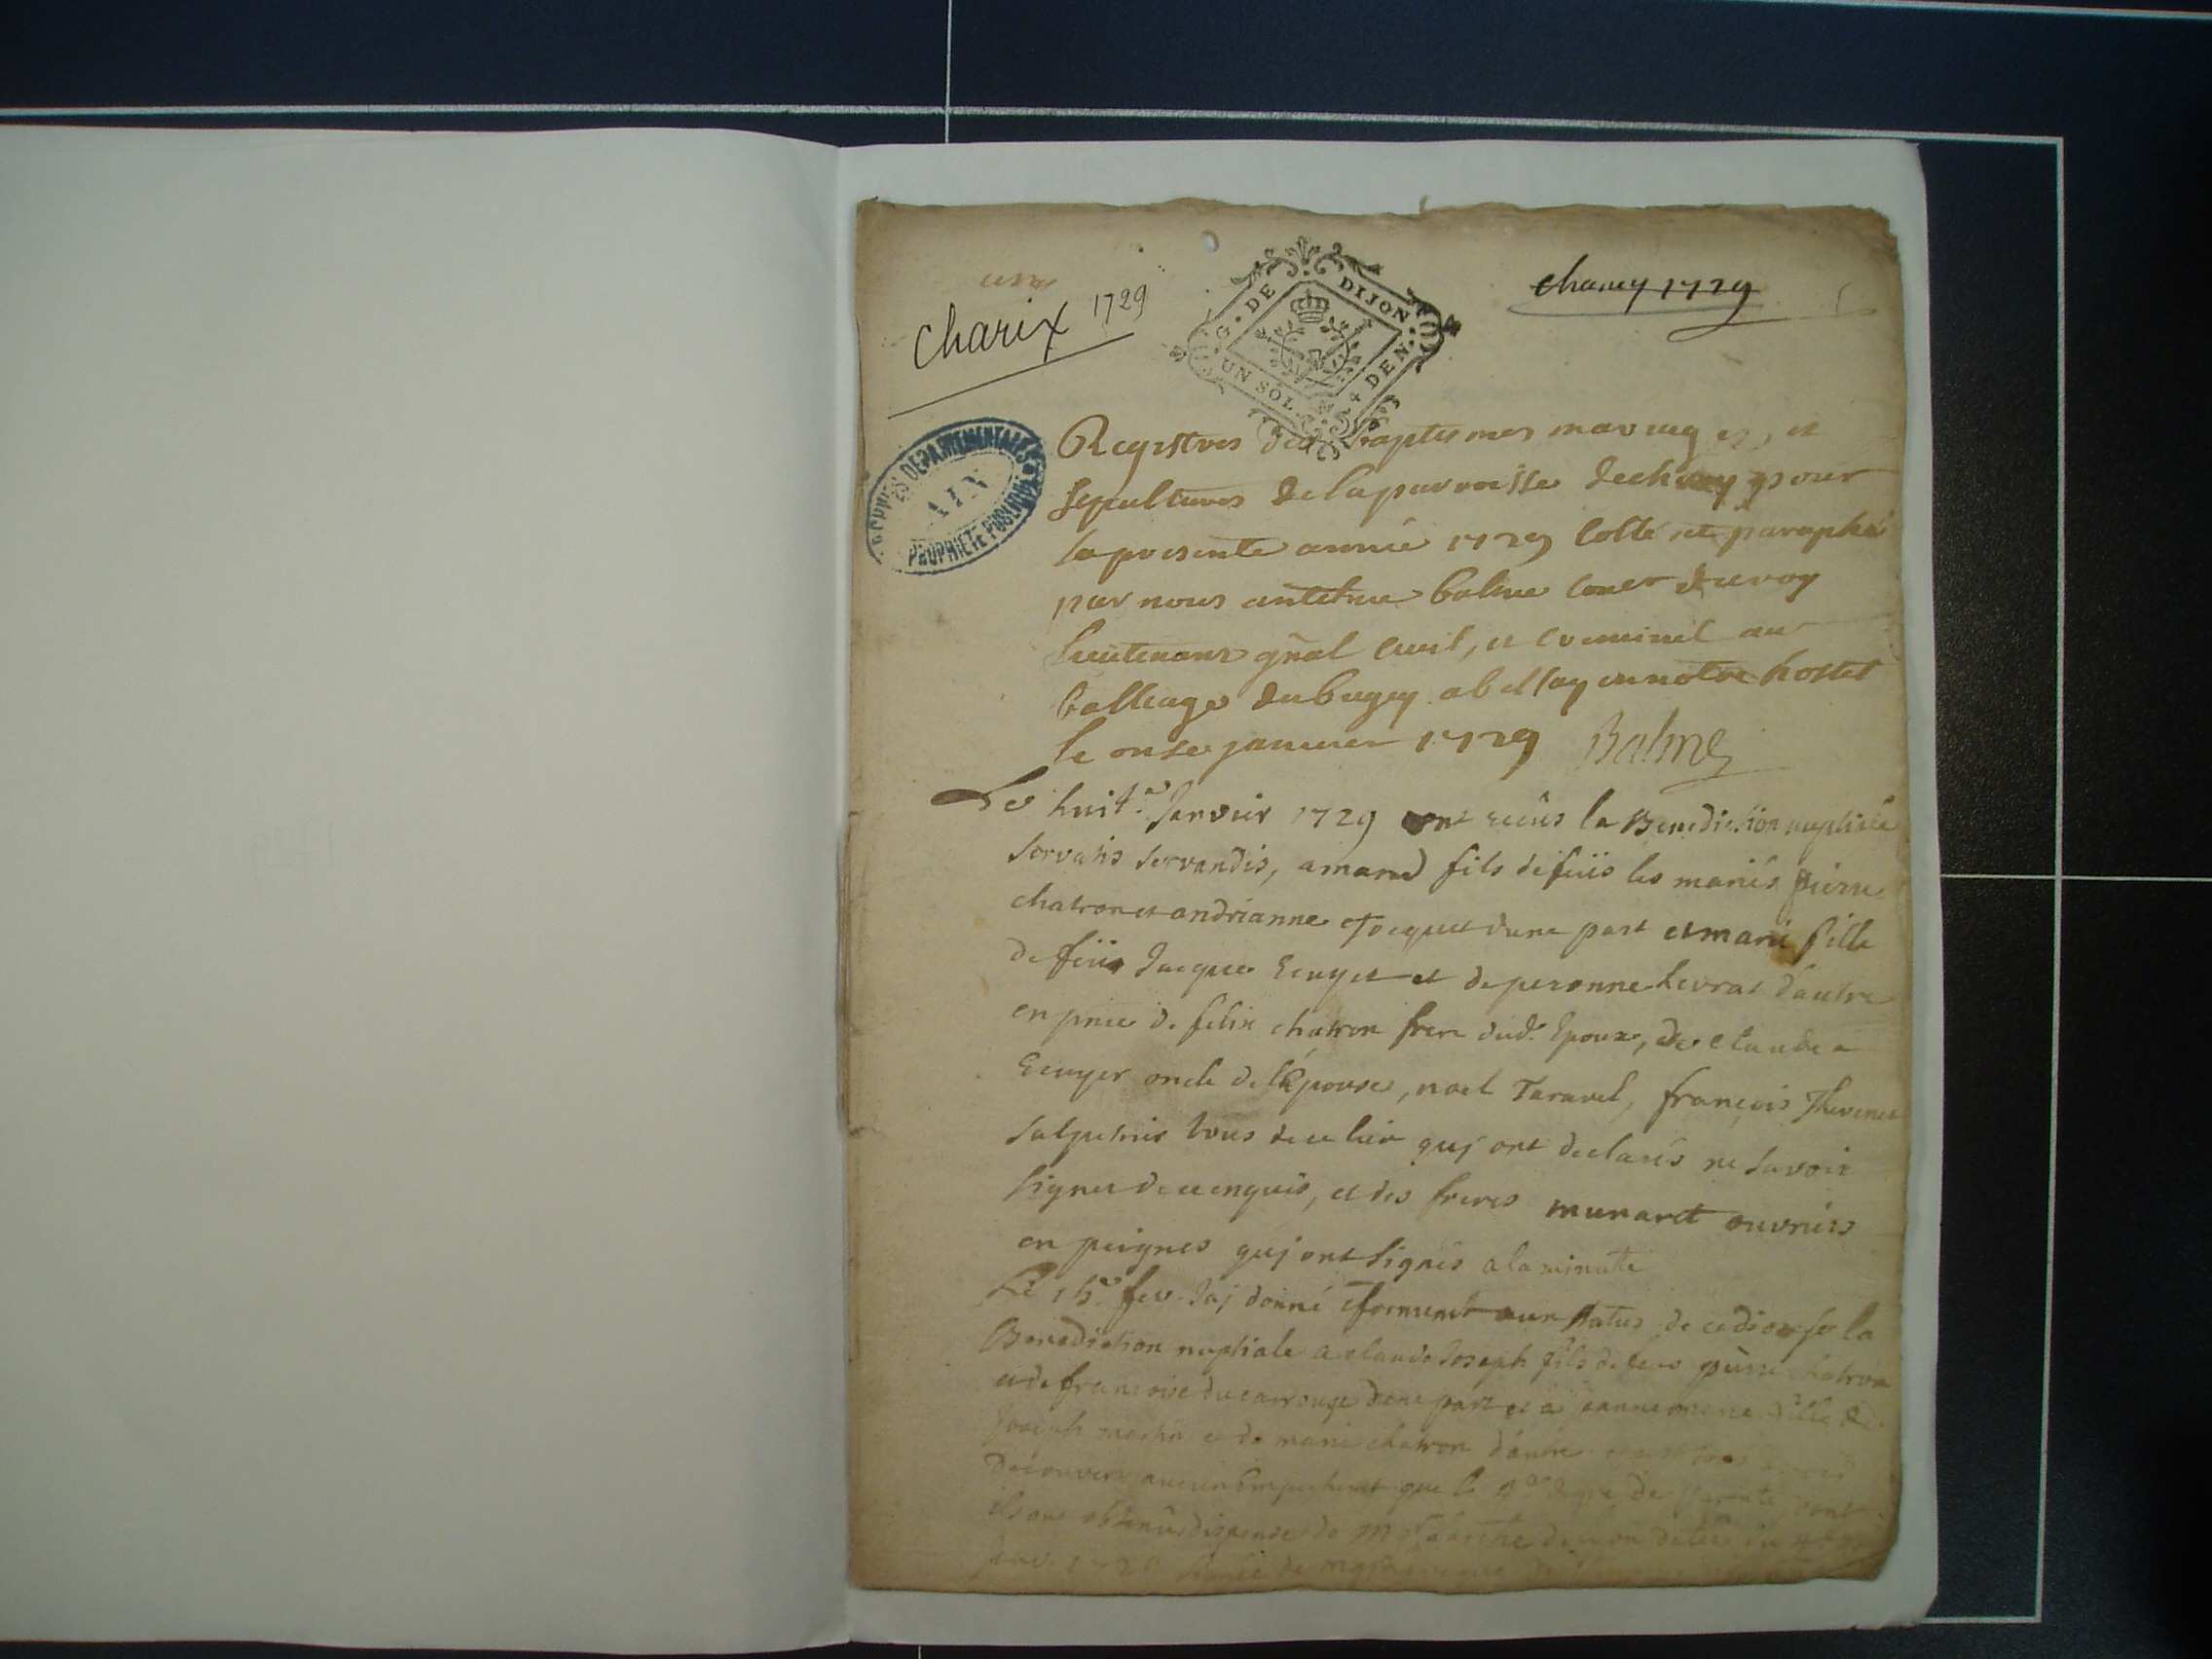 Charix 1729
chary 1729
G. DE DIJON
UN SOL 4 DEN.
ARCHIVES DEPARTEMENTALES
AIN
PROPRIETE PUBLIQUE
Registres des baptesmes mariages, et
sepultures de la parroisse de pour
la presente année 1729 Cotté et paraphé
par nous anthelme balme Coner du roy
lieutenant gñal Civil, et Criminel au
balliage du bugey a bellay en notre hostel
le onse janvier 1729 Balme
Le huit.e Janvier 1729 ont recûs la Benediction nuptiale
servatis servandis, amand fils de feûs les mariés pierre
chatron et andrianne Jocquet d'une part et marie fille
de feûs Jacques Ecuyer et de peronne hevrat d'autre
en pnce de felix chatron frere dud. Epoux, de claude
Ecuyer oncle de l'Epouse, noel Taravel, françois Thevenet
tous de ce lieu quj ont declarés ne savoir
signer de ce enquis, et des freres munaret ouvriers
en peignes quj ont signés a la minute
Le 15.e fev. J'aj donné aux statuts de ce diocese la
Benediction nuptiale a claude Joseph fils de feu pierre chatron
et de francoise ducarrouge d'une part et a janne marie fille de
Joseph et de marie chatron d'autre
Decouvert aucun Empechement que le degré de parenté dont
ils ont obtenûs dispense de de Lion datée du
janv. 1729 signée de